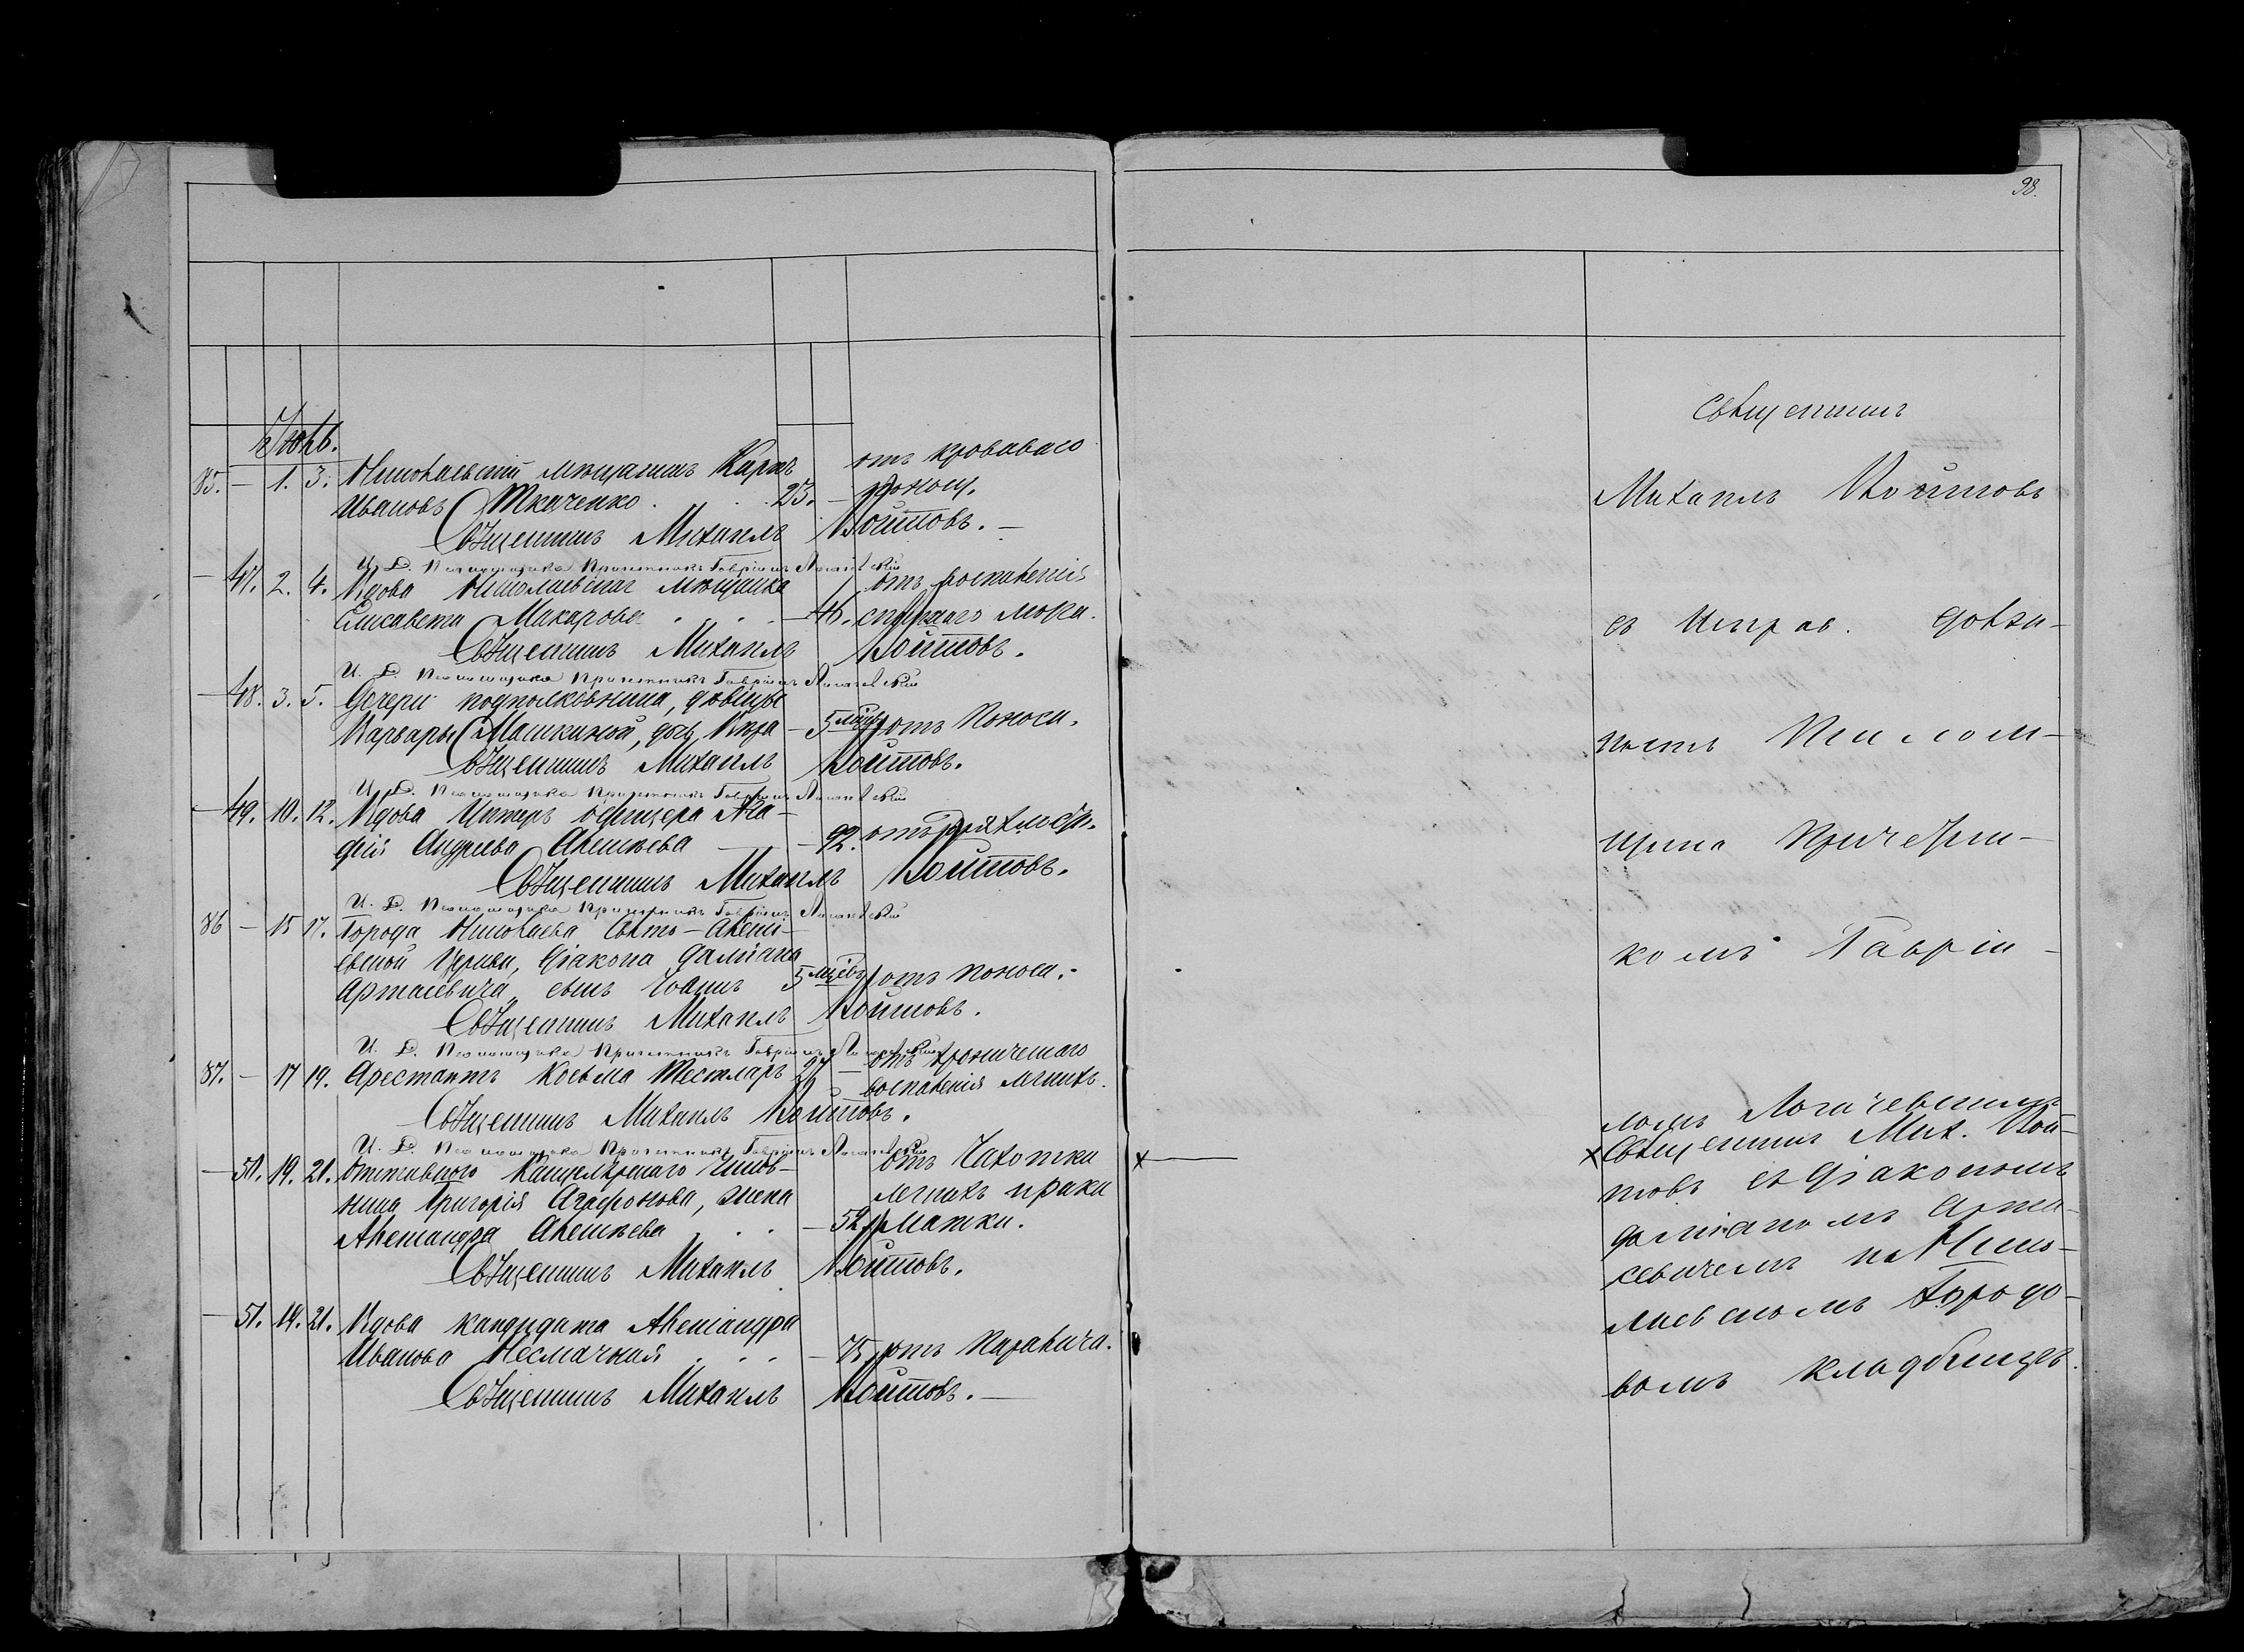 98.
Іюль.
85. — 1. 3. Николаевскій мѣщанинъ Карпъ
Ивановъ Ткаченко . . 23. — отъ кроваваго
поноса.
Священникъ Михаилъ Войтовъ. —
И. Д. Псаломщика Причетникъ Гавріилъ
— 47. 2. 4. Вдова Николаевская мѣщанка
Елисавета Макарова . . . — 46. отъ воспаленія
спиннаго мозга.
Священникъ Михаилъ Войтовъ.
И. Д. Псаломщика Причетникъ Гавріилъ
— 48. 3. 5. Дочери подполковника, дѣвицы
Варвары Машкиной, дочь Вѣра — 5 мѣсяц. отъ поноса.
Священникъ Михаилъ Войтовъ.
И. Д. Псаломщика Причетникъ Гавріилъ
— 49. 10. 12. Вдова Унтеръ офицера
Андреева Алексѣева — 92. отъ дряхлости.
Священникъ Михаилъ Войтовъ.
И. Д. Псаломщика Причетникъ Гавріилъ
86 — 15 17. Города Николаева Свято-Алексі-
евской Церкви, Діакона Даміана
Артасевича, сынъ Іоаннъ 5 мѣсяцевъ отъ поноса. —
Священникъ Михаилъ Войтовъ.
И. Д. Псаломщика Причетникъ Гавріилъ
87. — 17 19. Арестантъ Косьма Тестларъ 27 — отъ хроническаго
воспаленія легкихъ.
Священникъ Михаилъ Войтовъ.
И. Д. Псаломщика Причетникъ Гавріилъ
— 50. 19. 21. Отставного Канцелярскаго Чинов-
ника Григорія Агафонова, жена
Александра Алексѣева . . — 52. отъ Чахотки
легкихъ и рака
матки.
Священникъ Михаилъ Войтовъ.
— 51. 19. 21. Вдова кандидата Александра
Иванова Несмачная . . . — 75. отъ паралича.
Священникъ Михаилъ Войтовъ. —
Священникъ
Михаилъ Войтовъ
съ Исправ. долж-
ность Псалом-
щика Причетни-
комъ Гаврiи-
ломъ Логачевскимъ
× Священникъ Мих. Вой-
товъ съ Діакономъ
Даміаномъ Арта-
севичемъ на Нико-
лаевскомъ Городо-
вомъ кладбищѣ.